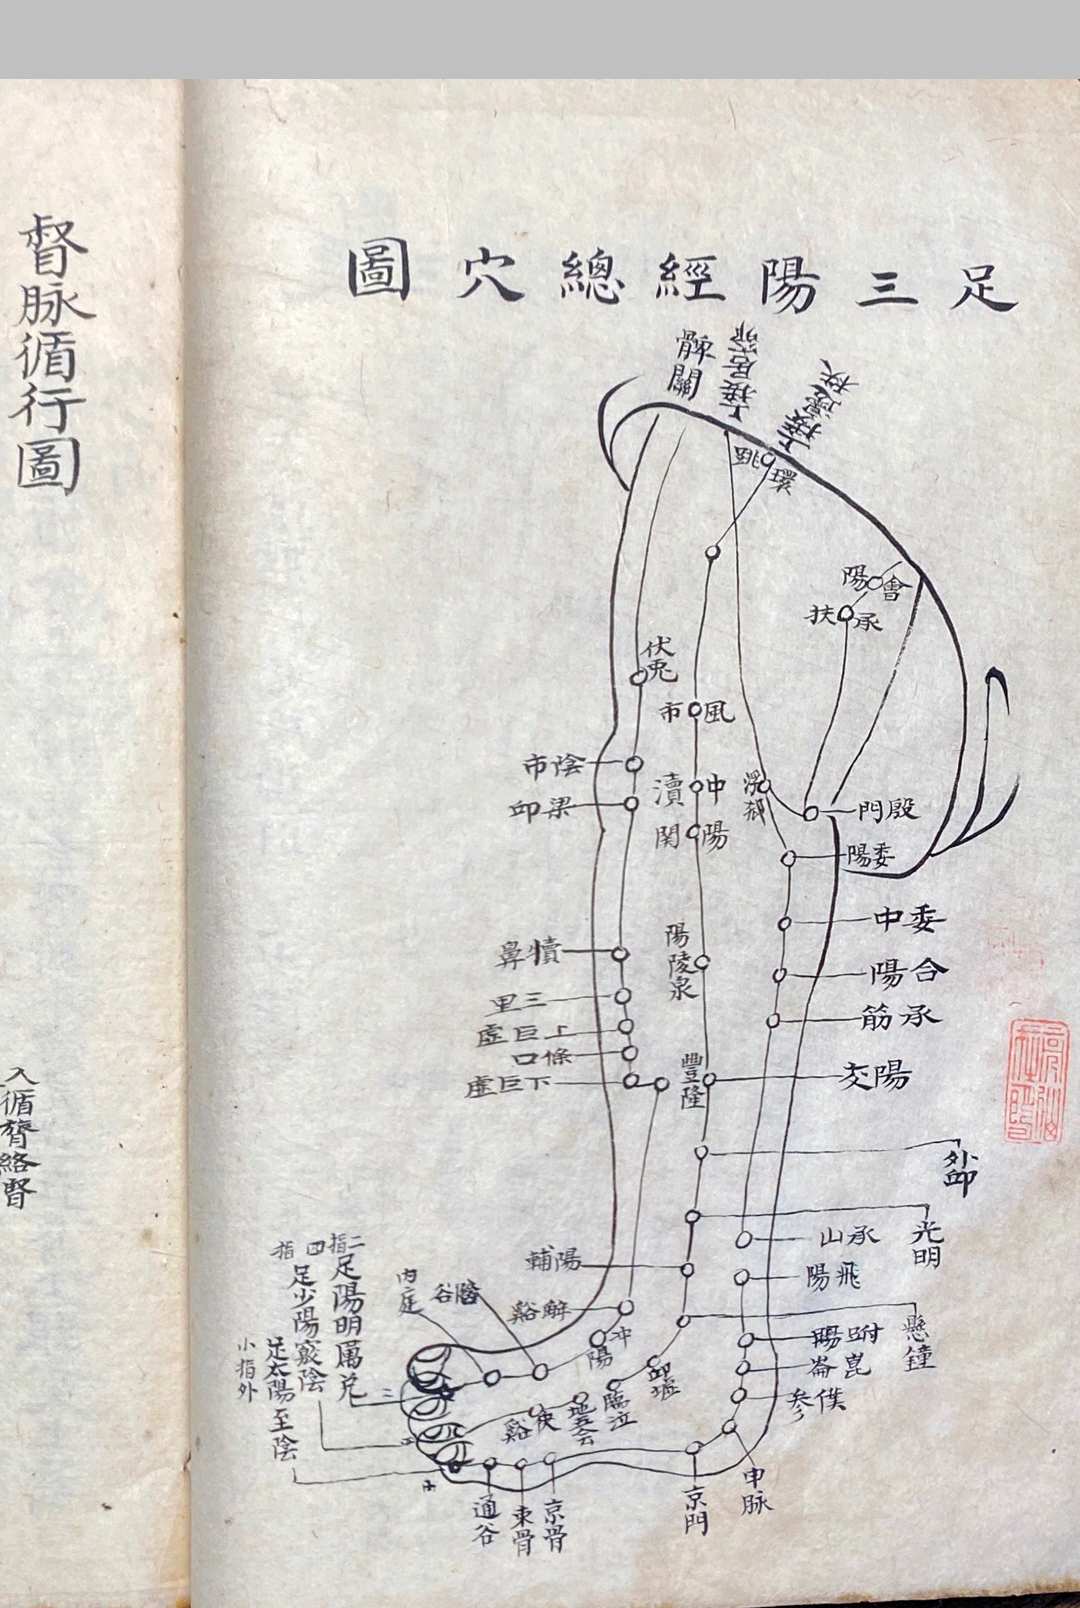 足三陽經總穴圖
髀關
上接居窌
上接邊挾
環
跳
會陽
承扶
伏兎
風市
陰市
中瀆
梁邱
陽關
浮郄
殷門
委陽
委中
犢鼻
陽陵泉
合陽
三里
承筋
上巨虛
條口
下巨虛
豐隆
陽交
外邱
光明
承山
陽輔
飛陽
解谿
懸鐘
跗陽
冲陽
崑崙
邱墟
僕參
臨泣
地五會
俠谿
陷谷
內庭
二指足陽明厲兌
四指足少陽竅陰
小指外足太陽至陰
通谷
束骨
京骨
京門
申脉
督脉循行圖
入循膂絡腎